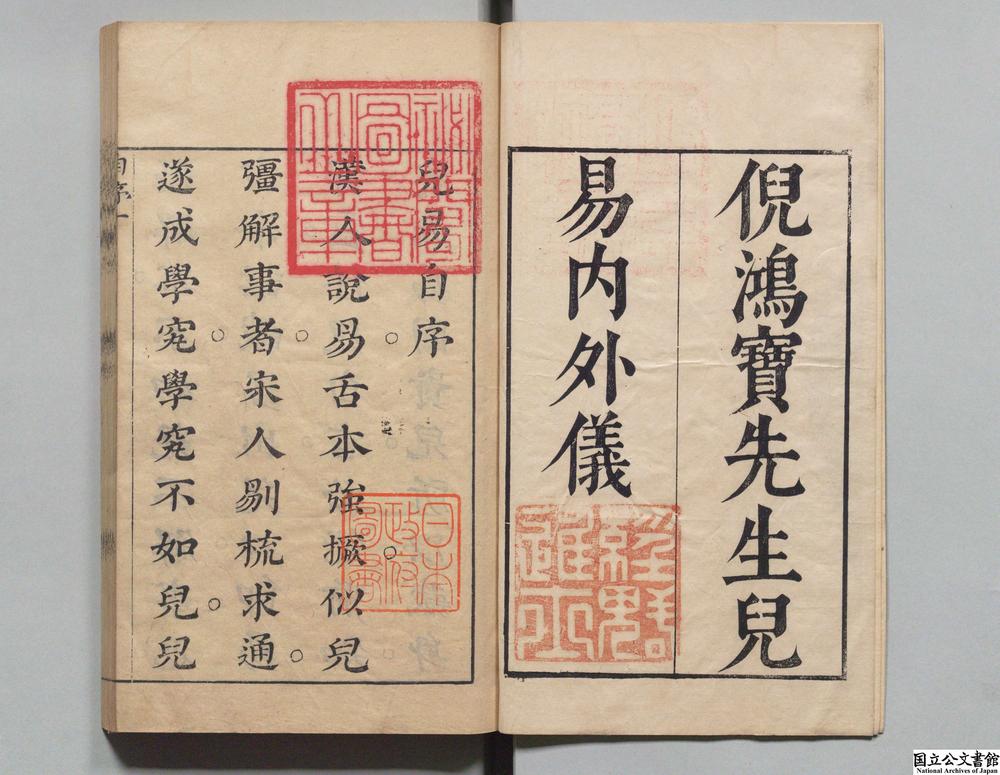 倪鴻寶先生兒
易内外儀
兒易自序
漢人說易舌本強撅似兒
彊解事者宋人剔梳求通
遂成學究學究不如兒兒
自序一
秘閣圖書之章
日本政府圖書
国立公文書館
National Archives of Japan